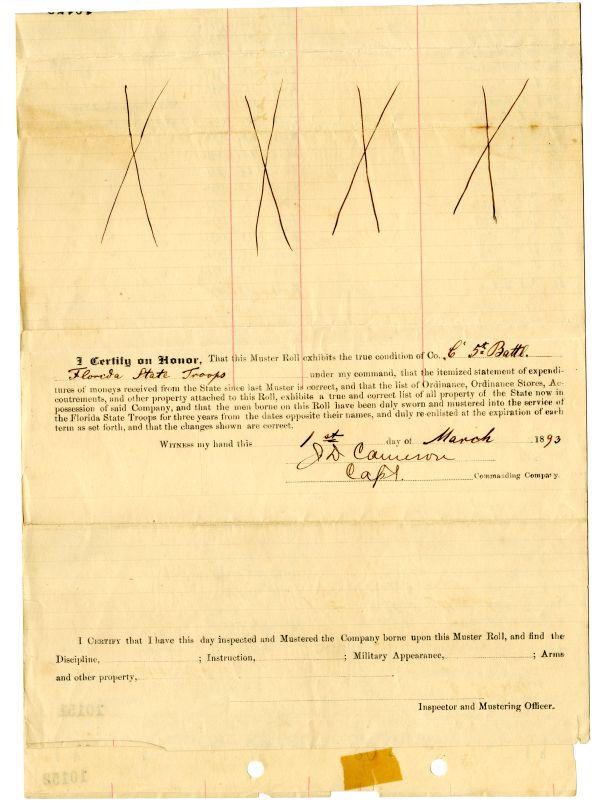 I Certify on Honor, That this Muster Roll exhibits the true condition of Co. "C" 5th Battl.
Florida State Troops under my command, that the itemized statement of expendi-
tures of moneys received from the State since last Muster is correct, and that the list of Ordinance, Ordinance Stores, Ac-
coutrements, and other property attached to this Roll, exhibits a true and correct list of all property of the State now in
possession of said Company, and that the men borne on this Roll have been duly sworn and mustered into the service of
the Florida State Troops for three years from the dates opposite their names, and duly re-enlisted at the expiration of each
term as set forth, and that the changes shown are correct.
WITNESS my hand this 1st day of March 1893
J D Cameron
Capt. Commanding Company.
I CERTIFY that I have this day inspected and Mustered the Company borne upon this Muster Roll, and find the
Discipline, ; Instruction, ; Military Appearance, ; Arms
and other property,
Inspector and Mustering Officer.
10151
10152